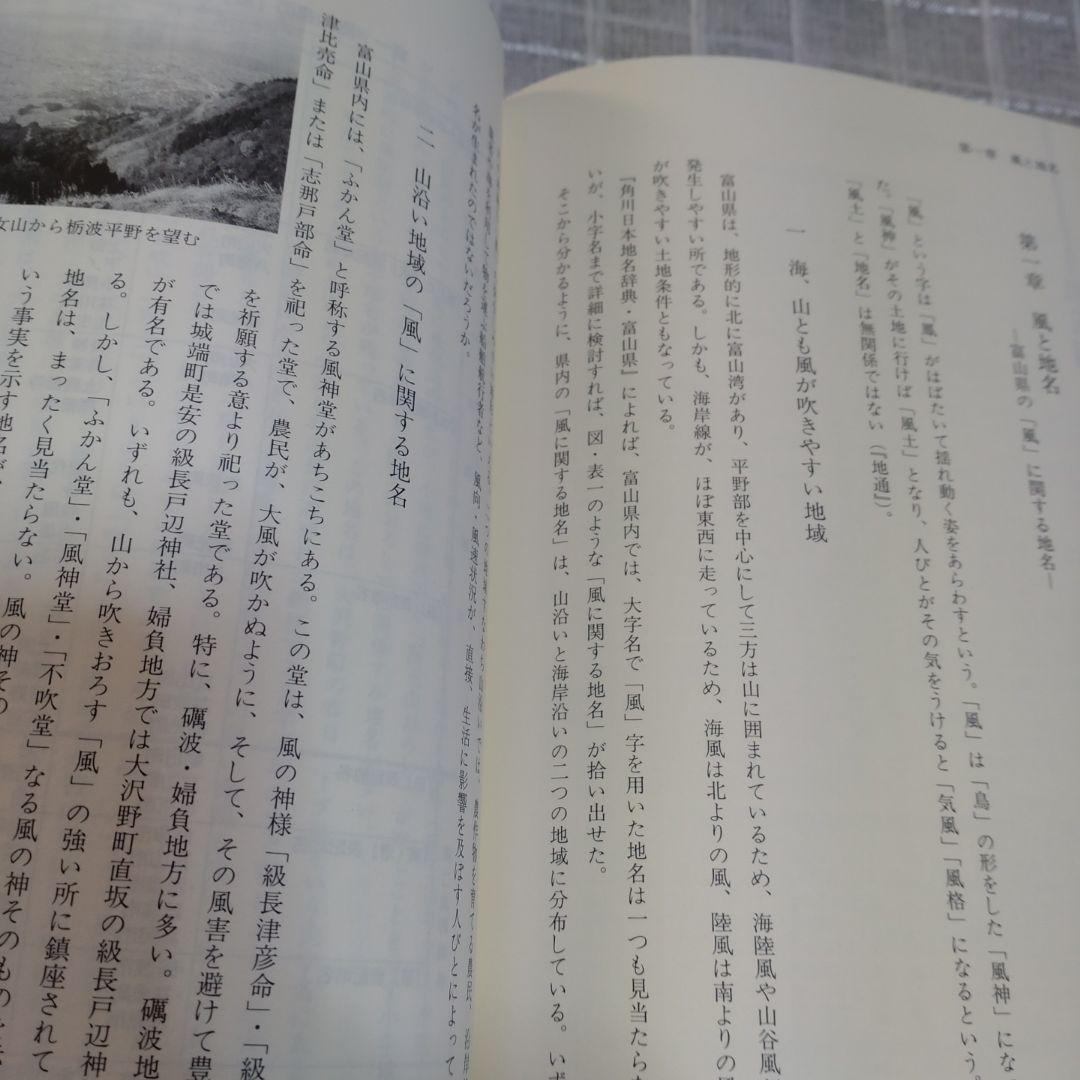 第一章　風と地名
第一章　風と地名
―富山県の「風」に関する地名―
「風」という字は「風」がはばたいて揺れ動く姿をあらわすという。「風」は「鳥」の形をした「風神」にな
た。「風神」がその土地に行けば「風土」となり、人びとがその気をうけると「気風」「風格」になるという。
「風土」と「地名」は無関係ではない（『地通』）。
一　海、山とも風が吹きやすい地域
富山県は、地形的に北に富山湾があり、平野部を中心にして三方は山に囲まれているため、海陸風や山谷風が
発生しやすい所である。しかも、海岸線が、ほぼ東西に走っているため、海風は北よりの風、陸風は南よりの風
が吹きやすい土地条件ともなっている。
『角川日本地名辞典・富山県』によれば、富山県内では、大字名で「風」字を用いた地名は一つも見当たらな
いが、小字名まで詳細に検討すれば、図・表一のような「風に関する地名」が拾い出せた。
そこから分かるように、県内の「風に関する地名」は、山沿いと海岸沿いの二つの地域に分布している。いず
風向、風速状況が、直接、生活に影響を及ぼす人びとによって
名が生まれたのではないだろうか。
二　山沿い地域の「風」に関する地名
富山県内には、「ふかん堂」と呼称する風神堂があちこちにある。この堂は、風の神様「級長津彦命」・「級
津比売命」または「志那戸部命」を祀った堂で、農民が、大風が吹かぬように、そして、その風害を避けて豊
を祈願する意より祀った堂である。特に、礪波・婦負地方に多い。礪波地
では城端町是安の級長戸辺神社、婦負地方では大沢野町直坂の級長戸辺神
が有名である。いずれも、山から吹きおろす「風」の強い所に鎮座されて
る。しかし、「ふかん堂」・「風神堂」・「不吹堂」なる風の神そのものの
地名は、まったく見当たらない。風の神その
いう事実を示す地名が、
女山から栃波平野を望む